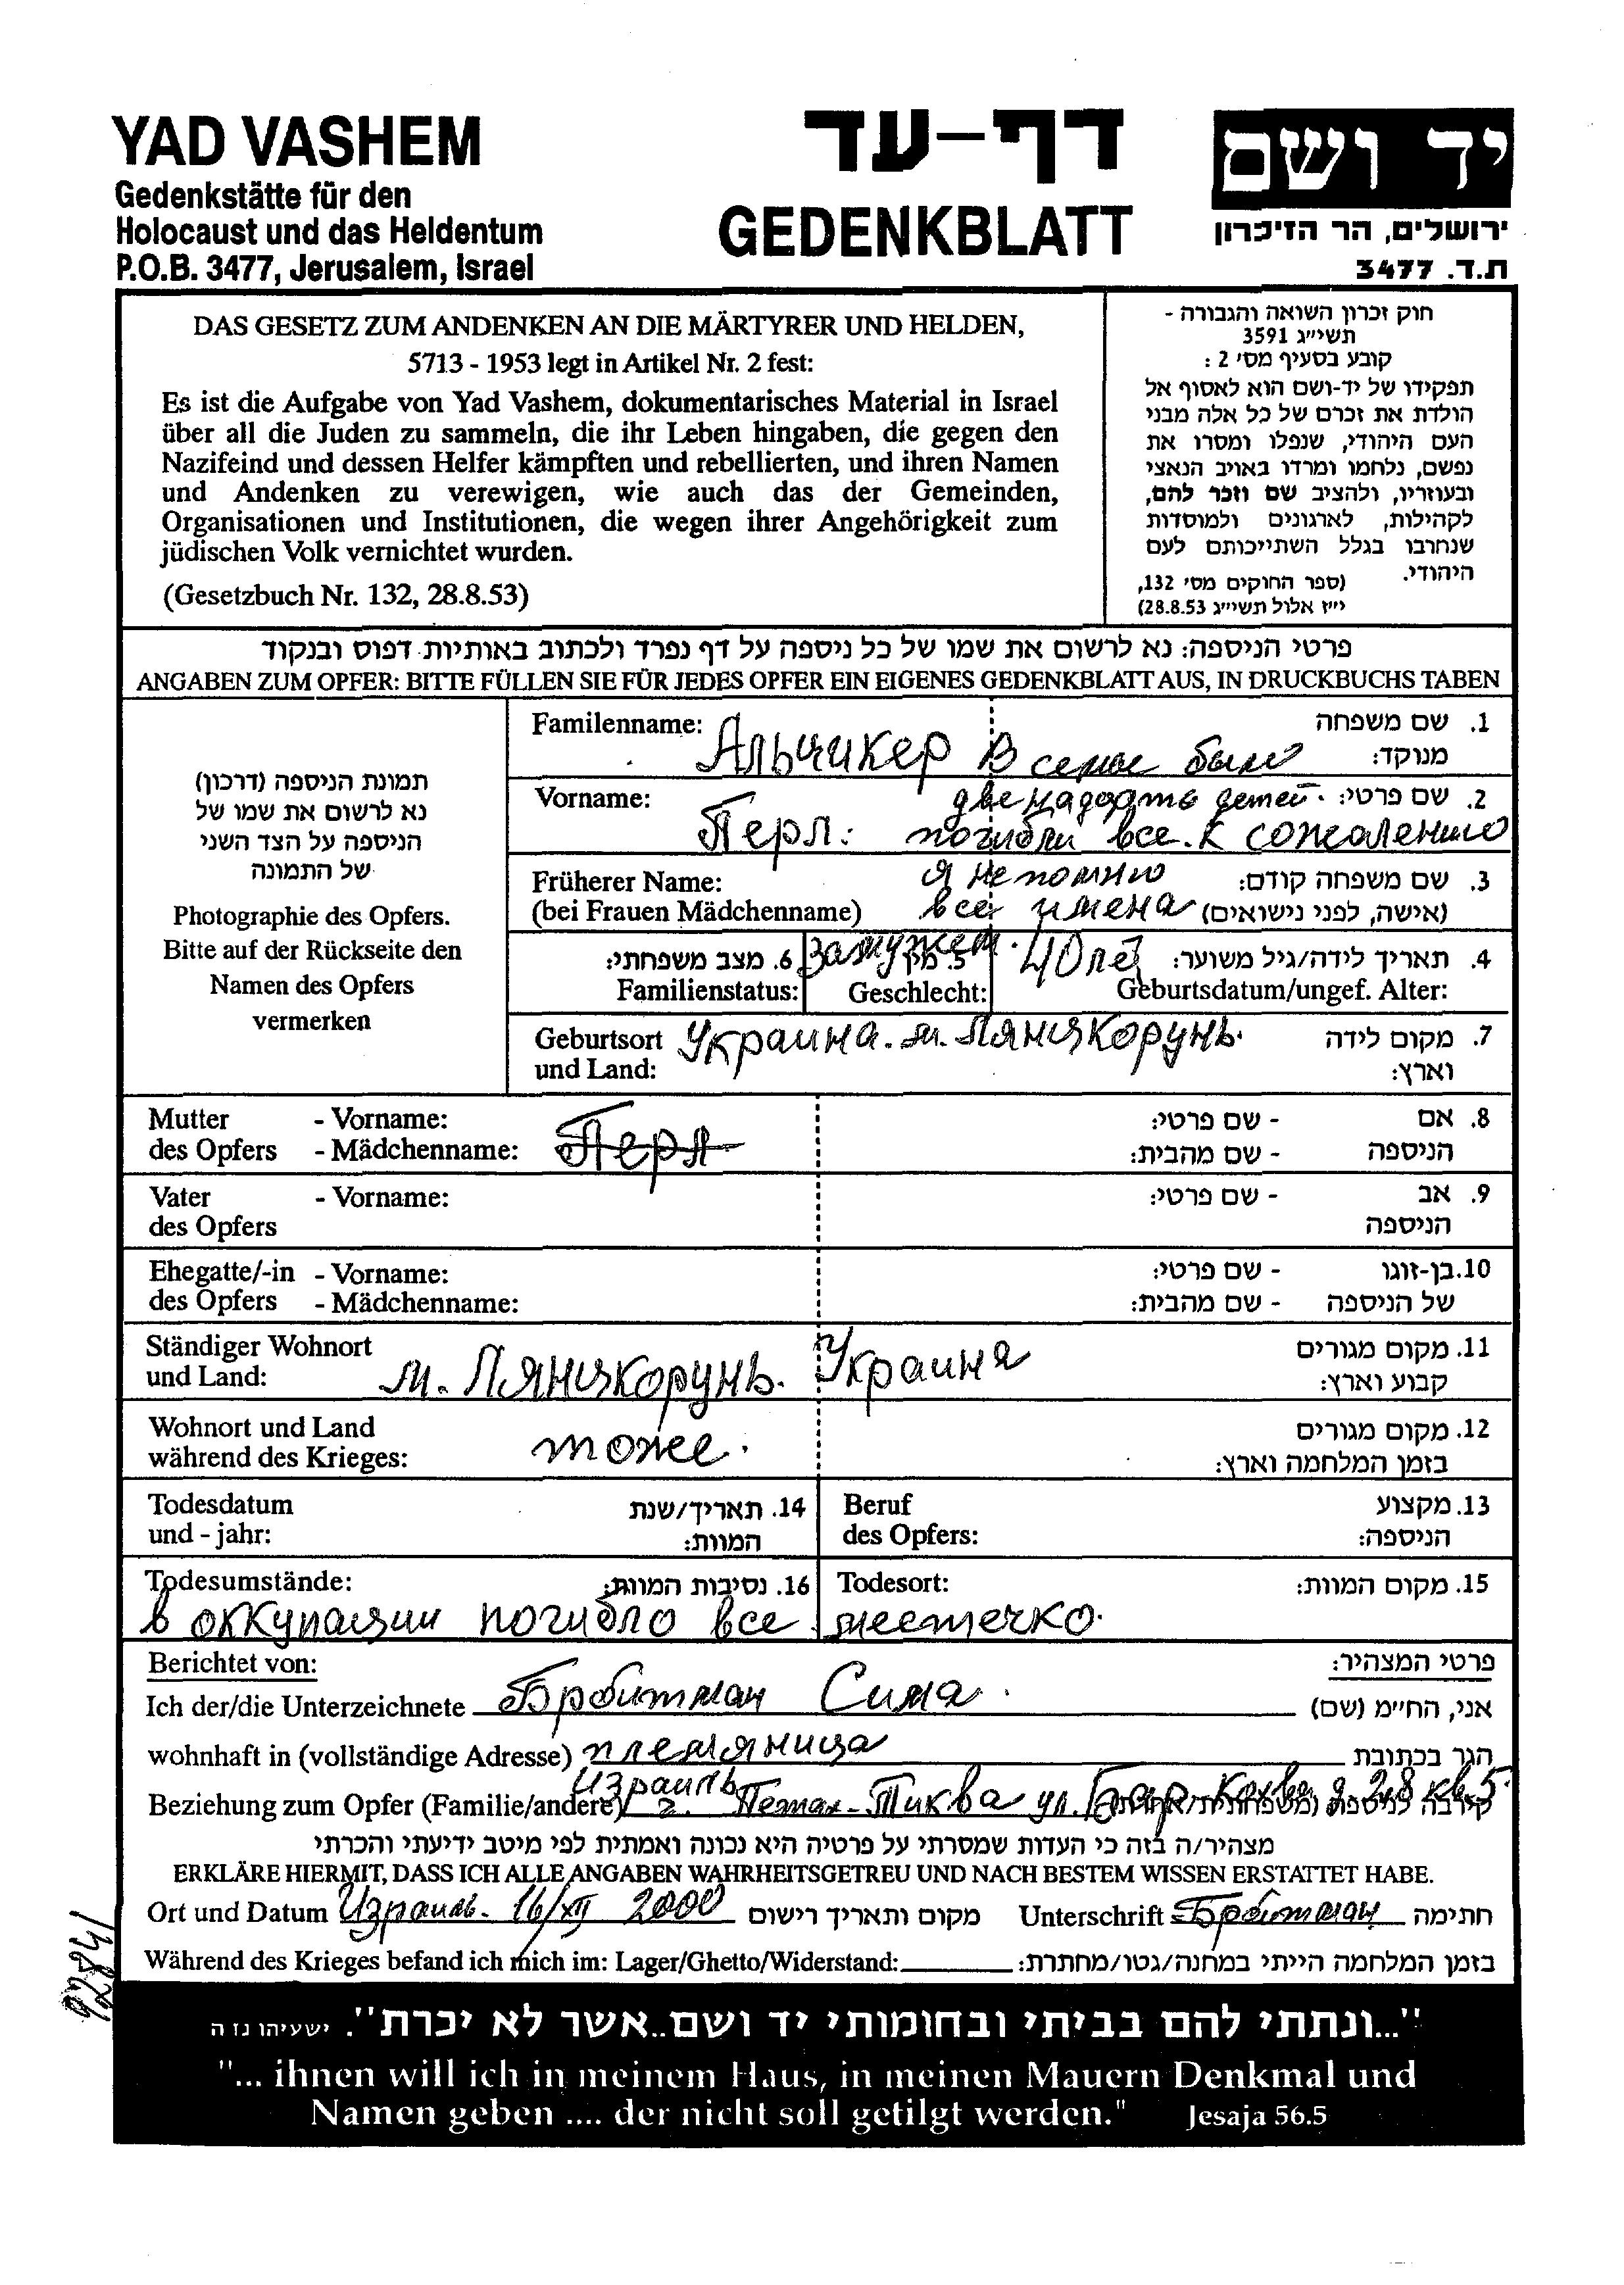 YAD VASHEM
Gedenkstätte für den
Holocaust und das Heldentum
P.O.B. 3477, Jerusalem, Israel
דף-עד
GEDENKBLATT
יד ושם
ירושלים, הר הזיכרון
ת.ד. 3477
DAS GESETZ ZUM ANDENKEN AN DIE MÄRTYRER UND HELDEN,
5713 - 1953 legt in Artikel Nr. 2 fest:
Es ist die Aufgabe von Yad Vashem, dokumentarisches Material in Israel
über all die Juden zu sammeln, die ihr Leben hingaben, die gegen den
Nazifeind und dessen Helfer kämpften und rebellierten, und ihren Namen
und Andenken zu verewigen, wie auch das der Gemeinden,
Organisationen und Institutionen, die wegen ihrer Angehörigkeit zum
jüdischen Volk vernichtet wurden.
(Gesetzbuch Nr. 132, 28.8.53)
חוק זכרון השואה והגבורה -
תשי״ג 3591
קובע בסעיף מס׳ 2 :
תפקידו של יד-ושם הוא לאסוף אל
הולדת את זכרם של כל אלה מבני
העם היהודי, שנפלו ומסרו את
נפשם, נלחמו ומרדו באויב הנאצי
ובעוזריו, ולהציב שם וזכר להם,
לקהילות, לארגונים ולמוסדות
שנחרבו בגלל השתייכותם לעם
היהודי. (ספר החוקים מס׳ 132,
י״ז אלול תשי״ג 28.8.53)
פרטי הניספה: נא לרשום את שמו של כל ניספה על דף נפרד ולכתוב באותיות דפוס ובנקוד
ANGABEN ZUM OPFER: BITTE FÜLLEN SIE FÜR JEDES OPFER EIN EIGENES GEDENKBLATT AUS, IN DRUCKBUCHS TABEN
תמונת הניספה (דרכון)
נא לרשום את שמו של
הניספה על הצד השני
של התמונה
Photographie des Opfers.
Bitte auf der Rückseite den
Namen des Opfers
vermerken
Familenname: Альчикер В семье было 1. שם משפחה
מנוקד:
Vorname: двенадцать детей. 2. שם פרטי:
Перл: погибли все. К сожалению
Früherer Name: я не помню 3. שם משפחה קודם:
(bei Frauen Mädchenname) все имена (אישה, לפני נישואים)
6. מצב משפחתי: замужем. 5. מין 40 лет 4. תאריך לידה/גיל משוער:
Familienstatus: Geschlecht: Geburtsdatum/ungef. Alter:
Geburtsort Украина. м. Лянцкорунь. 7. מקום לידה
und Land: וארץ:
Mutter - Vorname: - שם פרטי: 8. אם
des Opfers - Mädchenname: Перл - שם מהבית: הניספה
Vater - Vorname: - שם פרטי: 9. אב
des Opfers הניספה
Ehegatte/-in - Vorname: - שם פרטי: 10. בן-זוגו
des Opfers - Mädchenname: - שם מהבית: של הניספה
Ständiger Wohnort 11. מקום מגורים
und Land: м. Лянцкорунь. Украина קבוע וארץ:
Wohnort und Land 12. מקום מגורים
während des Krieges: тоже. בזמן המלחמה וארץ:
Todesdatum 14. תאריך/שנת Beruf 13. מקצוע
und - jahr: המוות: des Opfers: הניספה:
Todesumstände: 16. נסיבות המוות: Todesort: 15. מקום המוות:
в оккупации погибло все местечко.
Berichtet von: פרטי המצהיר:
Ich der/die Unterzeichnete Бройтман Сима. אני, החי״מ (שם)
wohnhaft in (vollständige Adresse) племяница הגר בכתובת
Израиль
Beziehung zum Opfer (Familie/andere) г. Петах-Тиква ул. Бар Кохва д. 28 кв. 5. קירבה לניספה (משפחתית/אחרת)
מצהיר/ה בזה כי העדות שמסרתי על פרטיה היא נכונה ואמתית לפי מיטב ידיעתי והכרתי
ERKLÄRE HIERMIT, DASS ICH ALLE ANGABEN WAHRHEITSGETREU UND NACH BESTEM WISSEN ERSTATTET HABE.
Ort und Datum Израиль. 16/XII 2000 מקום ותאריך רישום Unterschrift Бройтман חתימה
Während des Krieges befand ich mich im: Lager/Ghetto/Widerstand: בזמן המלחמה הייתי במחנה/גטו/מחתרת:
"...ונתתי להם בביתי ובחומותי יד ושם..אשר לא יכרת". ישעיהו נז ה
"... ihnen will ich in meinem Haus, in meinen Mauern Denkmal und
Namen geben .... der nicht soll getilgt werden." Jesaja 56.5